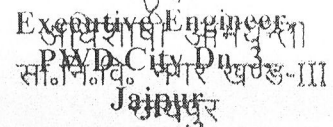 Executive Engineer
अधिशाषी अभियन्ता
PWD City Dn. 3,
सा.नि.वि. नगर खण्ड-III
Jaipur
जयपुर